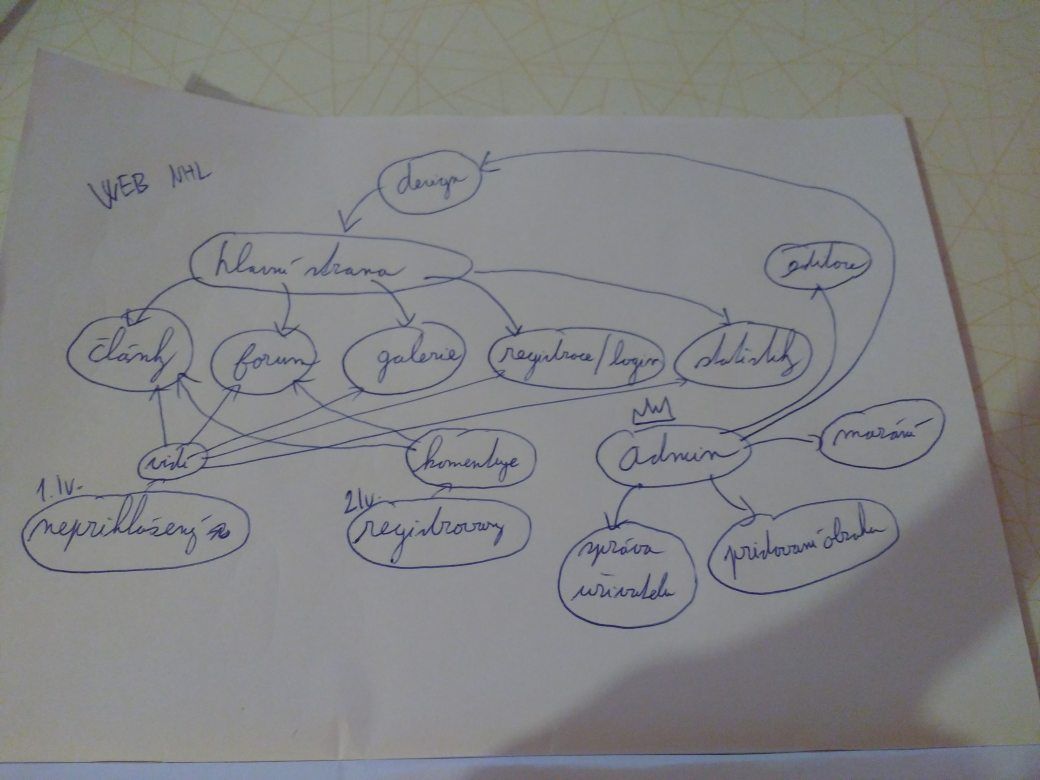 WEB NHL
design
hlavní strana
editace
články
forum
galerie
registrace/login
statistiky
vidí
komentuje
admin
mazání
1. lv.
nepřihlášený
2 lv.
registrovaný
správa
uživatelu
pridovaní obsahu